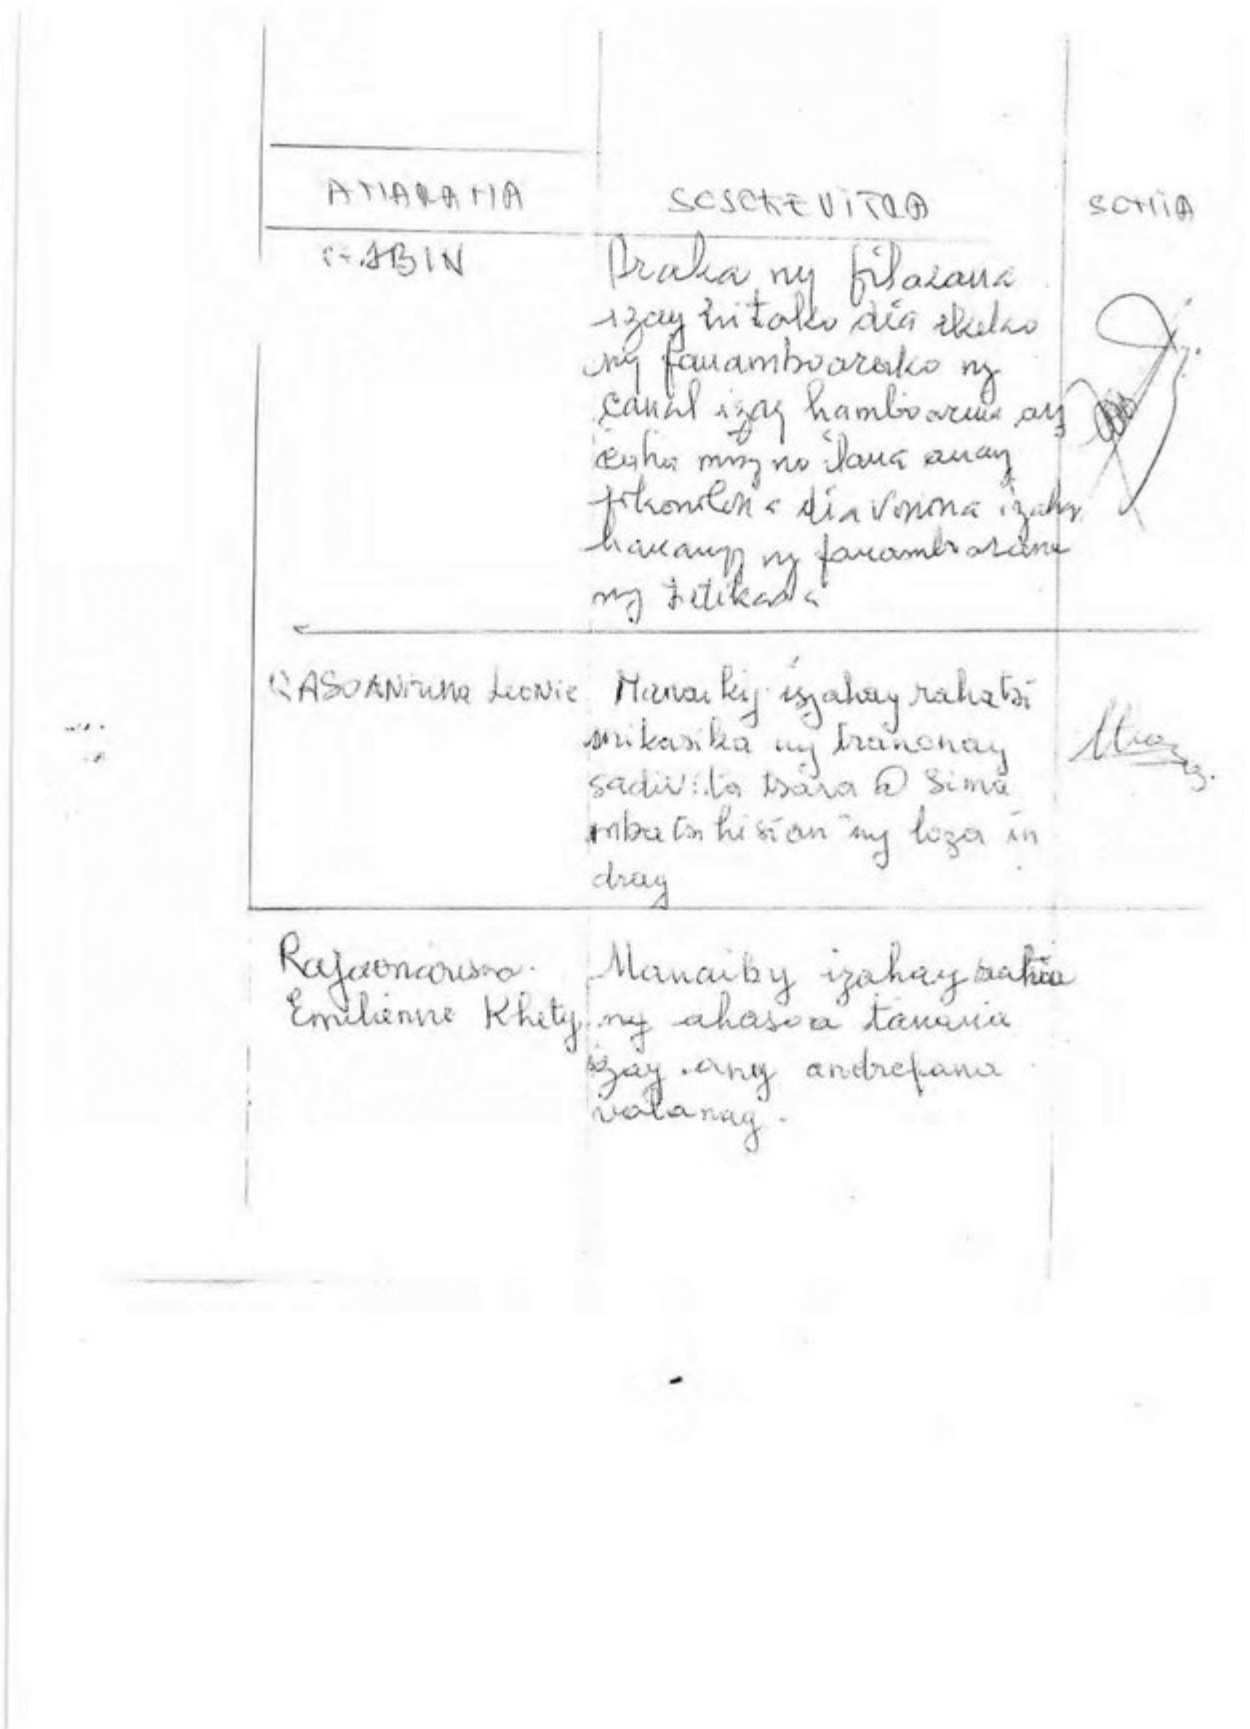 ANARANA SOSOKEVITRA SONIA
Araka ny filazana
izay hitako dia ekeko
ny fanamboarako ny
canal izay hamboarina ary
zaho mizy no ilana anay
fikonilana dia vonona izahay
hanampy ny fanamboarana
ny tetikasa
RASOANIRINA Leonie Manaiky izahay rahatsi
mikasika ny tranonay
sadiv ita tsara @ sima
mba tsi hisian'ny loza in
dray
Rajaonarison
Manaiky izahay
Emilienne Khety ny ahasoa tanana
izay any andrefana
valanay.